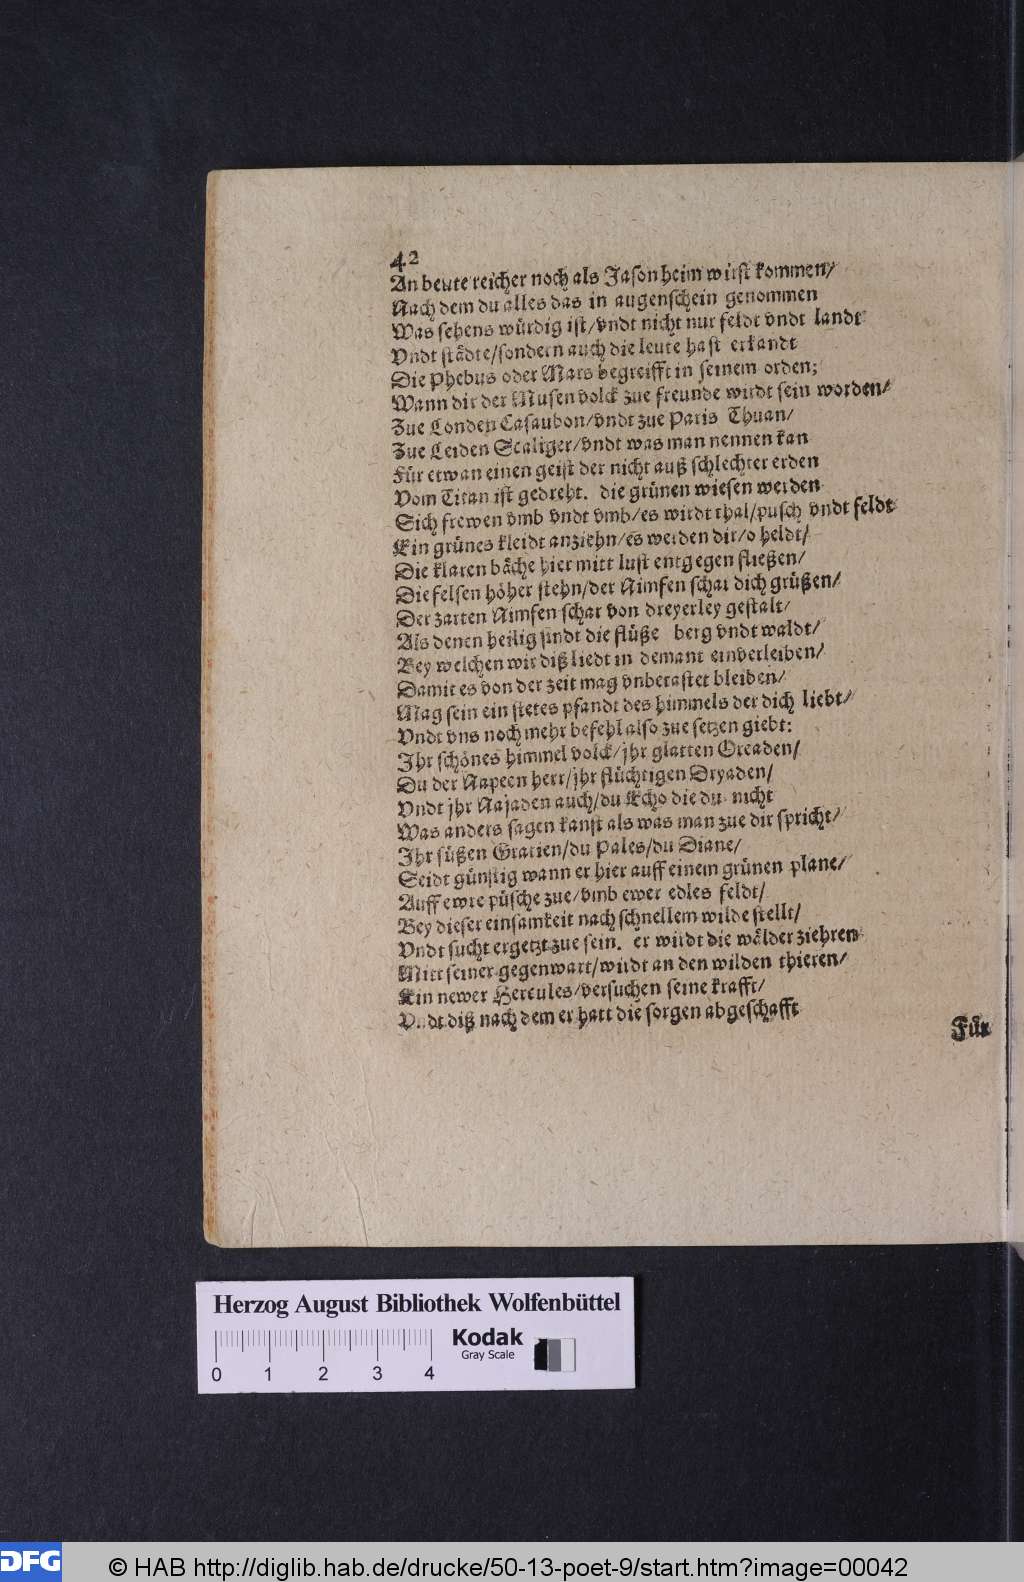 42
An beute reicher noch als Jason heim wirst kommen/
Nach dem du alles das in augenschein genommen
Was sehens würdig ist/vndt nicht nur feldt vndt landt
Vndt städte/sondern auch die leute hast erkandt
Die Phebus oder Mars begreifft in seinem orden;
Wann dir der Musen volck zue freunde wirdt sein worden/
Zue Londen Casaubon/vndt zue Paris Thuan/
Zue Leiden Scaliger/vndt was man nennen kan
Für etwan einen geist der nicht auß schlechter erden
Vom Titan ist gedreht. die grünen wiesen werden
Sich frewen vmb vndt vmb/es wirdt thal/pusch vndt feldt
Ein grünes kleidt anziehn/es werden dir/o heldt/
Die klaren bäche hier mitt lust entgegen fließen/
Die felsen höher stehn/der Nimfen schar dich grüßen/
Der zarten Nimfen schar von dreyerley gestalt/
Als denen heilig sindt die flüße berg vndt waldt/
Bey welchen wir diß liedt in demant einverleiben/
Damit es von der zeit mag vnberastet bleiben/
Mag sein ein stetes pfandt des himmels der dich liebt/
Vndt vns noch mehr befehl also zue setzen giebt:
Ihr schönes himmel volck/jhr glatten Oreaden/
Du der Napeen herr/jhr flüchtigen Dryaden/
Vndt jhr Najaden auch/du Echo die du nicht
Was anders sagen kanst als was man zue dir spricht/
Ihr süßen Gratien/du Pales/du Diane/
Seidt günstig wann er hier auff einem grünen plane/
Auff ewre püsche zue/vmb ewer edles feldt/
Bey dieser einsamkeit nach schnellem wilde stellt/
Vndt sucht ergetzt zue sein. er wirdt die wälder ziehren
Mitt seiner gegenwart/wirdt an den wilden thieren/
Ein newer Hercules/versuchen seine krafft/
Vndt diß nach dem er hatt die sorgen abgeschafft
Für
Herzog August Bibliothek Wolfenbüttel
Kodak
Gray Scale
0 1 2 3 4
DFG
© HAB http://diglib.hab.de/drucke/50-13-poet-9/start.htm?image=00042